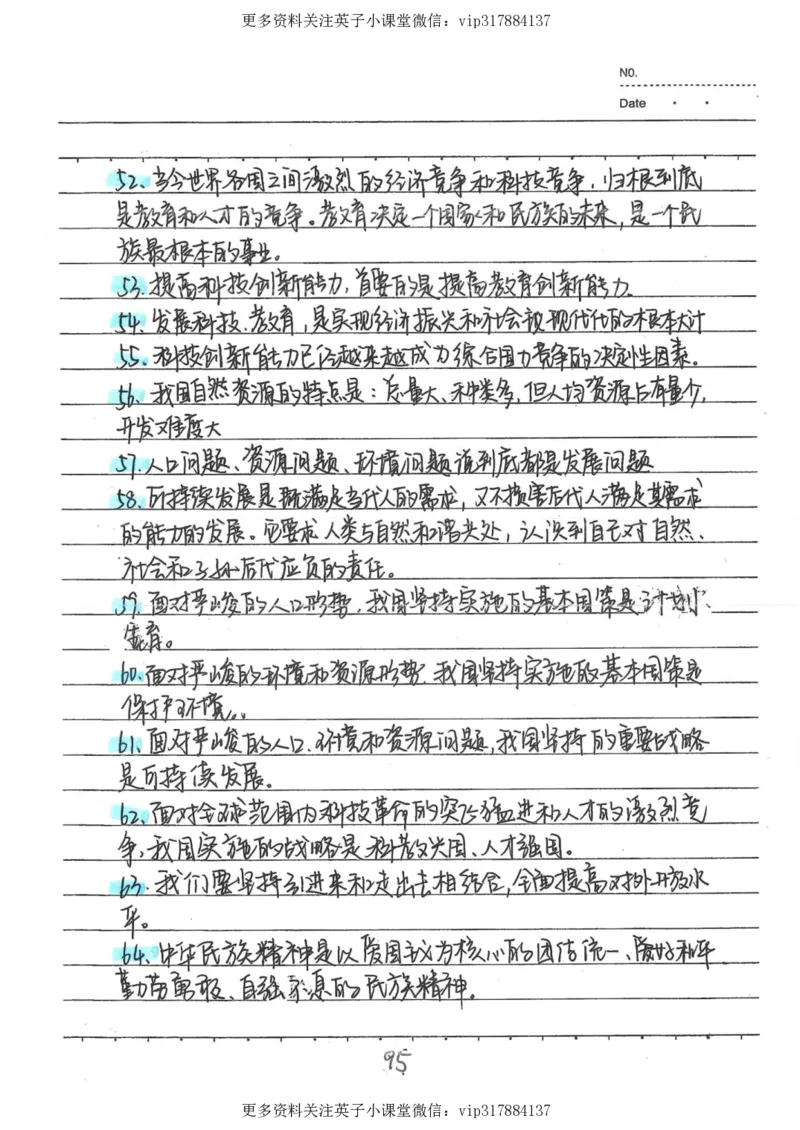 更多资料关注英子小课堂微信：vip317884137
NO.
Date
52、当今世界各国之间激烈的经济竞争和科技竞争，归根到底
是教育和人才的竞争。教育决定一个国家和民族的未来，是一个民
族最根本的事业。
53.提高科技创新能力，首要的是提高教育创新能力.
54、发展科技、教育，是实现经济振兴和社会现代化的根本大计
55、科技创新能力已经越来越成为综合国力竞争的决定性因素。
56、我国自然资源的特点是：总量大、种类多，但人均资源占有量少，
开发难度大
57、人口问题、资源问题、环境问题说到底都是发展问题
58、可持续发展是既满足当代人的需求，又不损害后代人满足其需求
的能力的发展。它要求人类与自然和谐共处，认识到自己对自然、
社会和子孙后代应负的责任。
59、面对严峻的人口形势，我国坚持实施的基本国策是计划
生育。
60、面对严峻的环境和资源形势，我国坚持实施的基本国策是
保护环境
61、面对严峻的人口、环境和资源问题，我国坚持的重要战略
是可持续发展。
62、面对全球范围内科技革命的突飞猛进和人才的激烈竞
争，我国实施的战略是科教兴国、人才强国。
63.我们要坚持引进来和走出去相结合，全面提高对外开放水
平。
64、中华民族精神是以爱国主义为核心的团结统一、爱好和平
勤劳勇敢、自强不息的民族精神。
95
更多资料关注英子小课堂微信：vip317884137